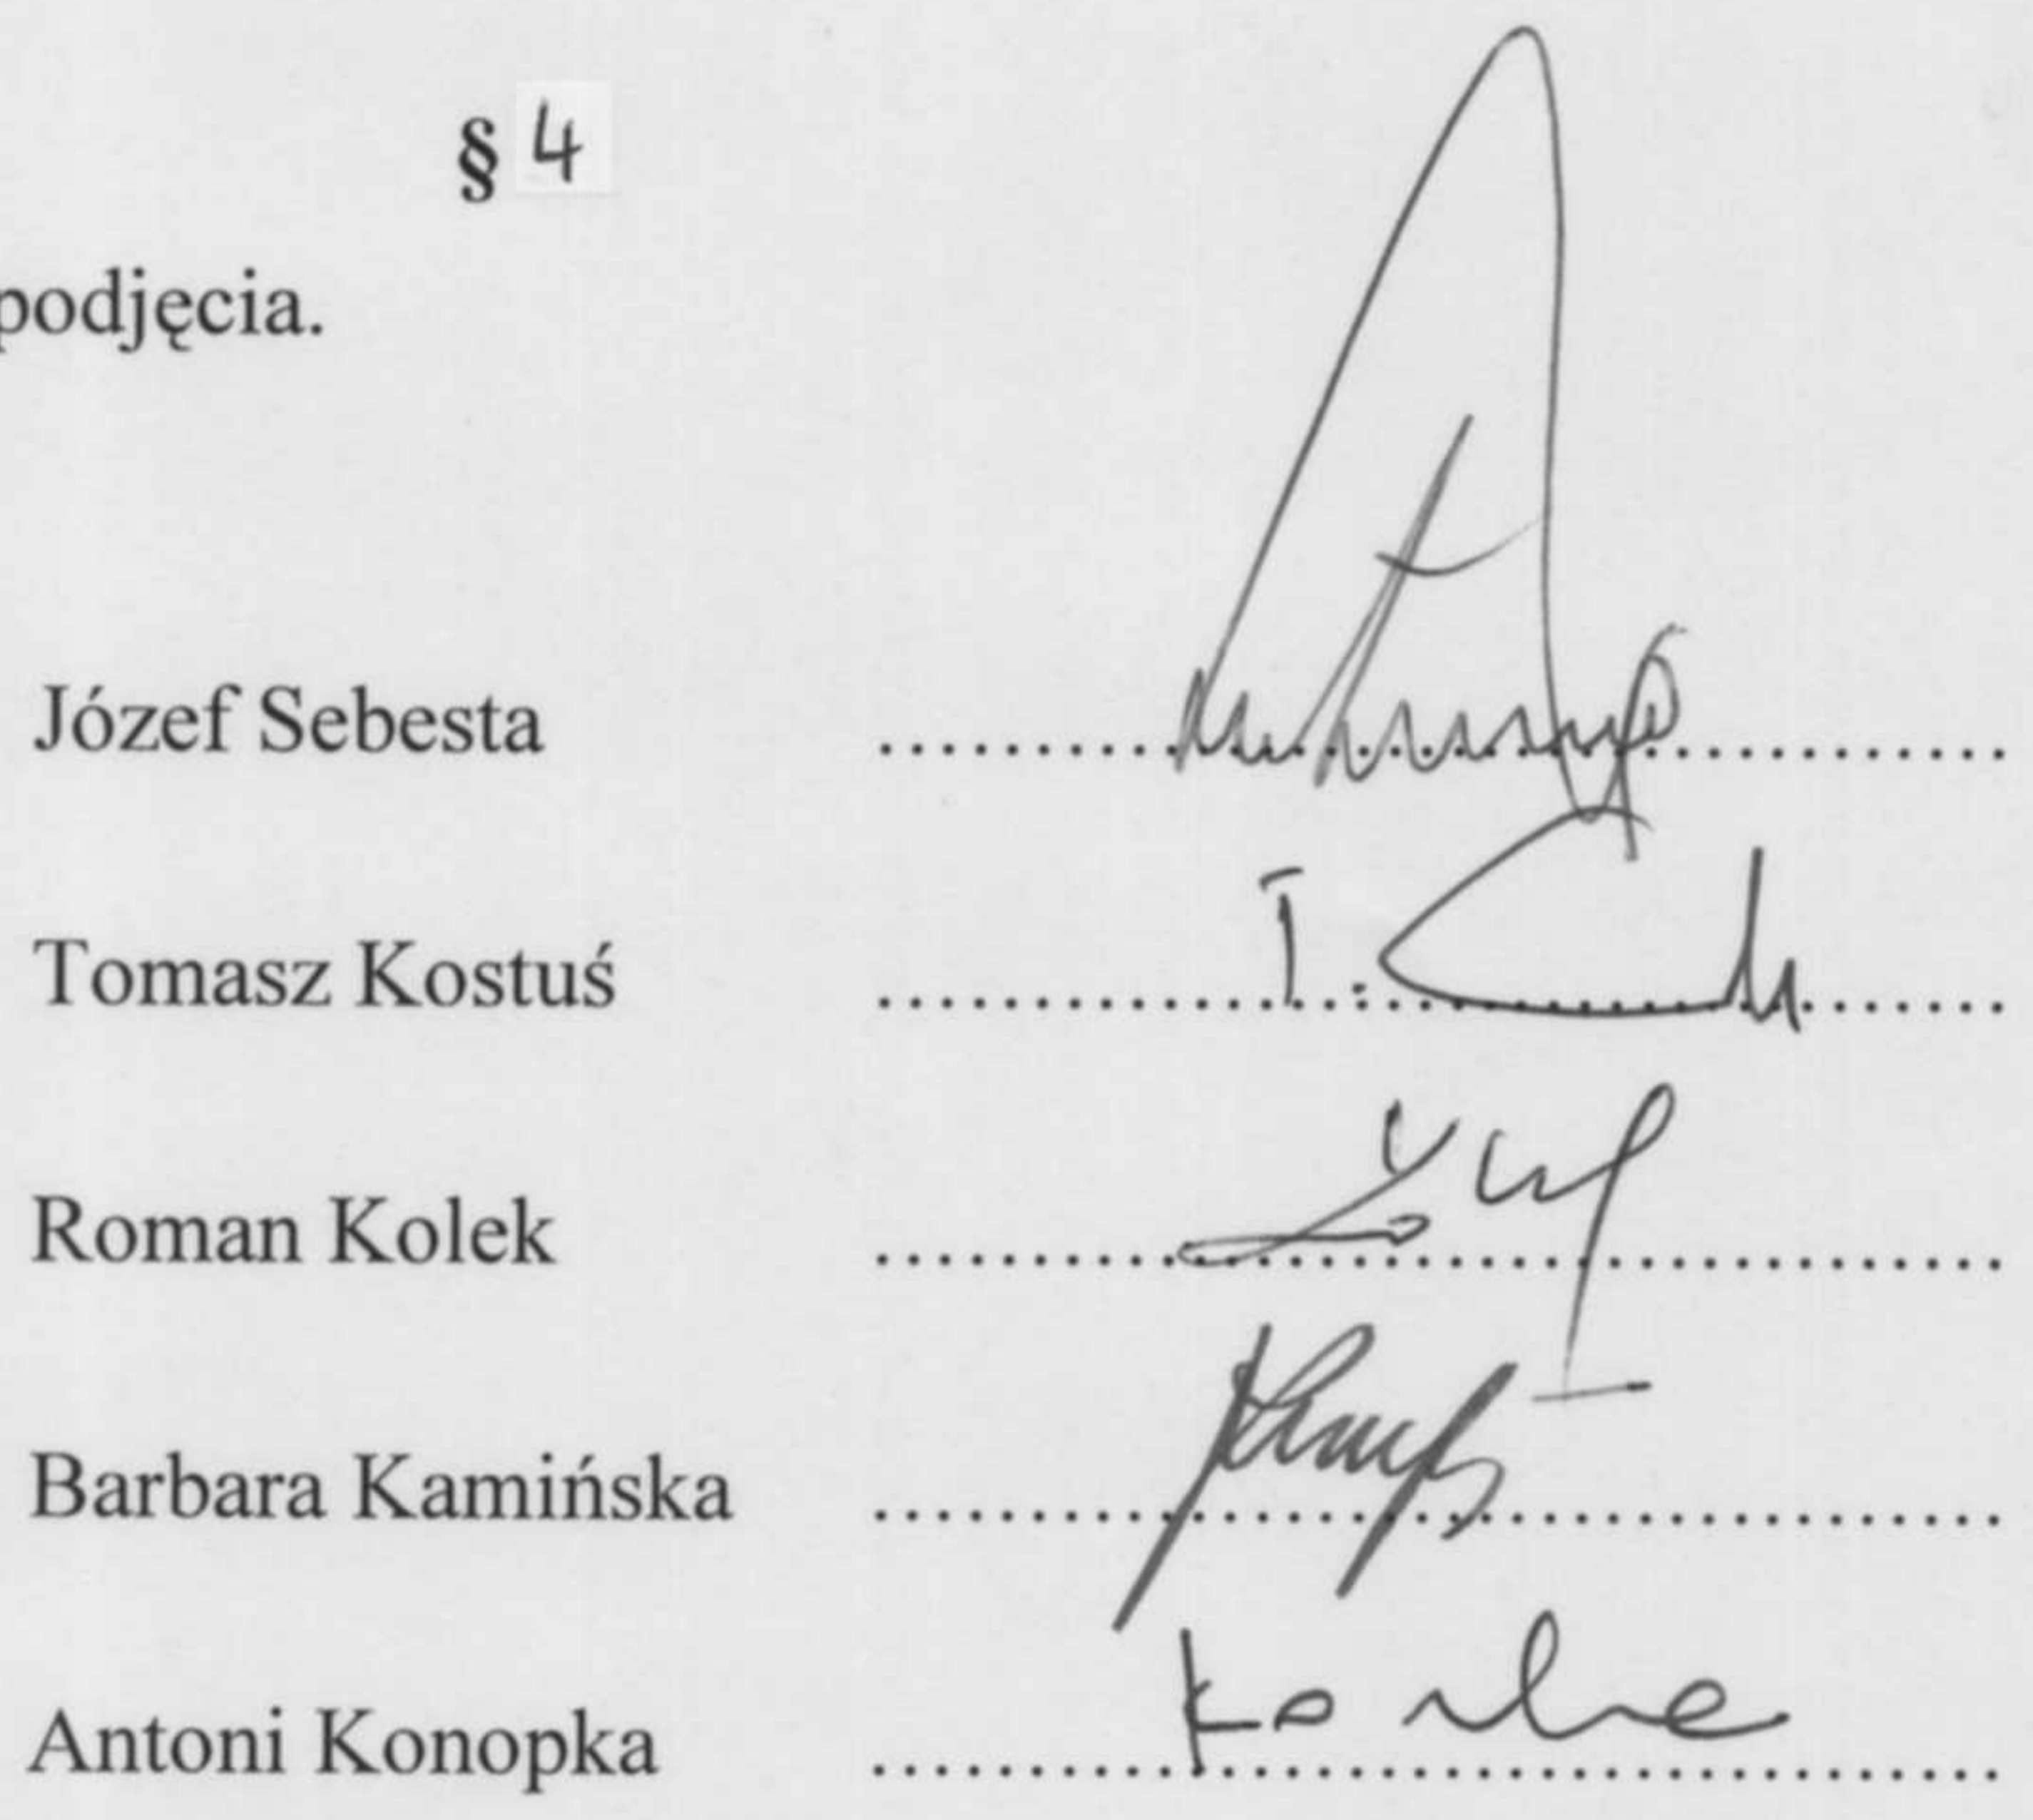 § 4
podjęcia.
Józef Sebesta ....................................
Tomasz Kostuś ....................................
Roman Kolek ....................................
Barbara Kamińska ....................................
Antoni Konopka ....................................